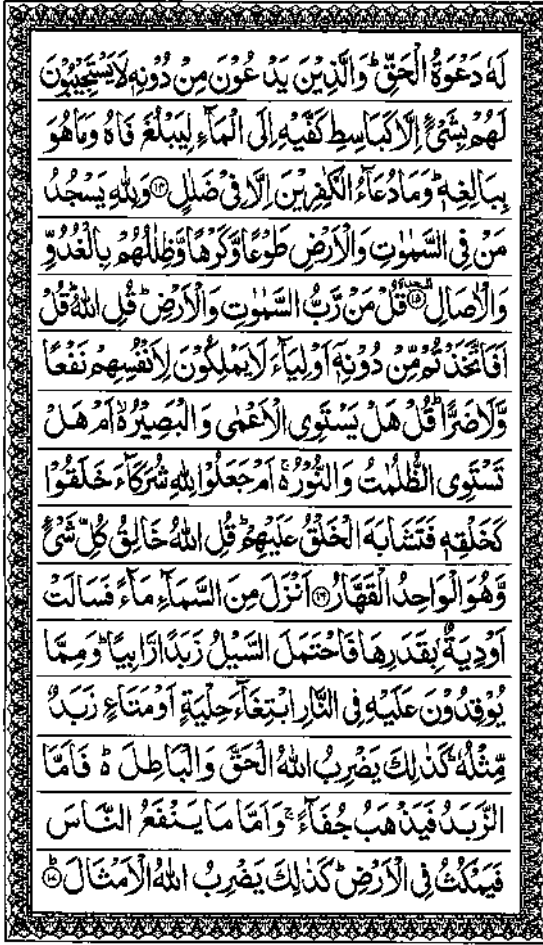 لَهٗ دَعْوَةُ الْحَقِّ ؕ وَالَّذِيْنَ يَدْعُوْنَ مِنْ دُوْنِهٖ لَا يَسْتَجِيْبُوْنَ
لَهُمْ بِشَیْءٍ اِلَّا كَبَاسِطِ كَفَّيْهِ اِلَى الْمَآءِ لِيَبْلُغَ فَاهُ وَمَا هُوَ
بِبَالِغِهٖ ؕ وَمَا دُعَآءُ الْكٰفِرِيْنَ اِلَّا فِیْ ضَلٰلٍ ۝۱۴ وَلِلّٰهِ يَسْجُدُ
مَنْ فِی السَّمٰوٰتِ وَالْاَرْضِ طَوْعًا وَّكَرْهًا وَّظِلٰلُهُمْ بِالْغُدُوِّ
وَالْاٰصَالِ ۝۱۵ قُلْ مَنْ رَّبُّ السَّمٰوٰتِ وَالْاَرْضِ ؕ قُلِ اللّٰهُ ؕ قُلْ
اَفَاتَّخَذْتُمْ مِّنْ دُوْنِهٖۤ اَوْلِيَآءَ لَا يَمْلِكُوْنَ لِاَنْفُسِهِمْ نَفْعًا
وَّلَا ضَرًّا ؕ قُلْ هَلْ يَسْتَوِی الْاَعْمٰی وَالْبَصِيْرُ ۙ۬ اَمْ هَلْ
تَسْتَوِی الظُّلُمٰتُ وَالنُّوْرُ ۚ۬ اَمْ جَعَلُوْا لِلّٰهِ شُرَكَآءَ خَلَقُوْا
كَخَلْقِهٖ فَتَشَابَهَ الْخَلْقُ عَلَيْهِمْ ؕ قُلِ اللّٰهُ خَالِقُ كُلِّ شَیْءٍ
وَّهُوَ الْوَاحِدُ الْقَهَّارُ ۝۱۶ اَنْزَلَ مِنَ السَّمَآءِ مَآءً فَسَالَتْ
اَوْدِيَةٌۢ بِقَدَرِهَا فَاحْتَمَلَ السَّيْلُ زَبَدًا رَّابِيًا ؕ وَمِمَّا
يُوْقِدُوْنَ عَلَيْهِ فِی النَّارِ ابْتِغَآءَ حِلْيَةٍ اَوْ مَتَاعٍ زَبَدٌ
مِّثْلُهٗ ؕ كَذٰلِكَ يَضْرِبُ اللّٰهُ الْحَقَّ وَالْبَاطِلَ ؕ۬ فَاَمَّا
الزَّبَدُ فَيَذْهَبُ جُفَآءً ۚ وَاَمَّا مَا يَنْفَعُ النَّاسَ
فَيَمْكُثُ فِی الْاَرْضِ ؕ كَذٰلِكَ يَضْرِبُ اللّٰهُ الْاَمْثَالَ ؕ۝۱۷